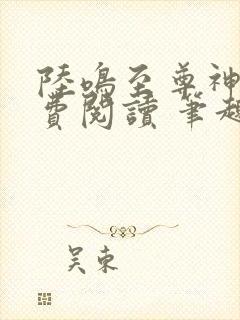 陸鳴至尊神
費閱讀 筆趣
吴东